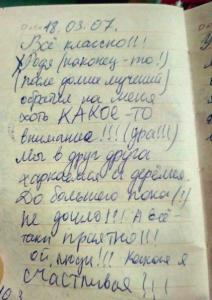 18.03.07.
Всё классно!!!
Федя (наконец-то!)
(после долгих мучений)
обратил на меня
хоть КАКОЕ-ТО
внимание!!! (ура!!!)
Мы в друг друга
харкаемся с деревьев.
До большего пока (!)
не дошло!!! А всё-
таки приятно!!!
Ой, люди!!! Какая я
счастливая!!!